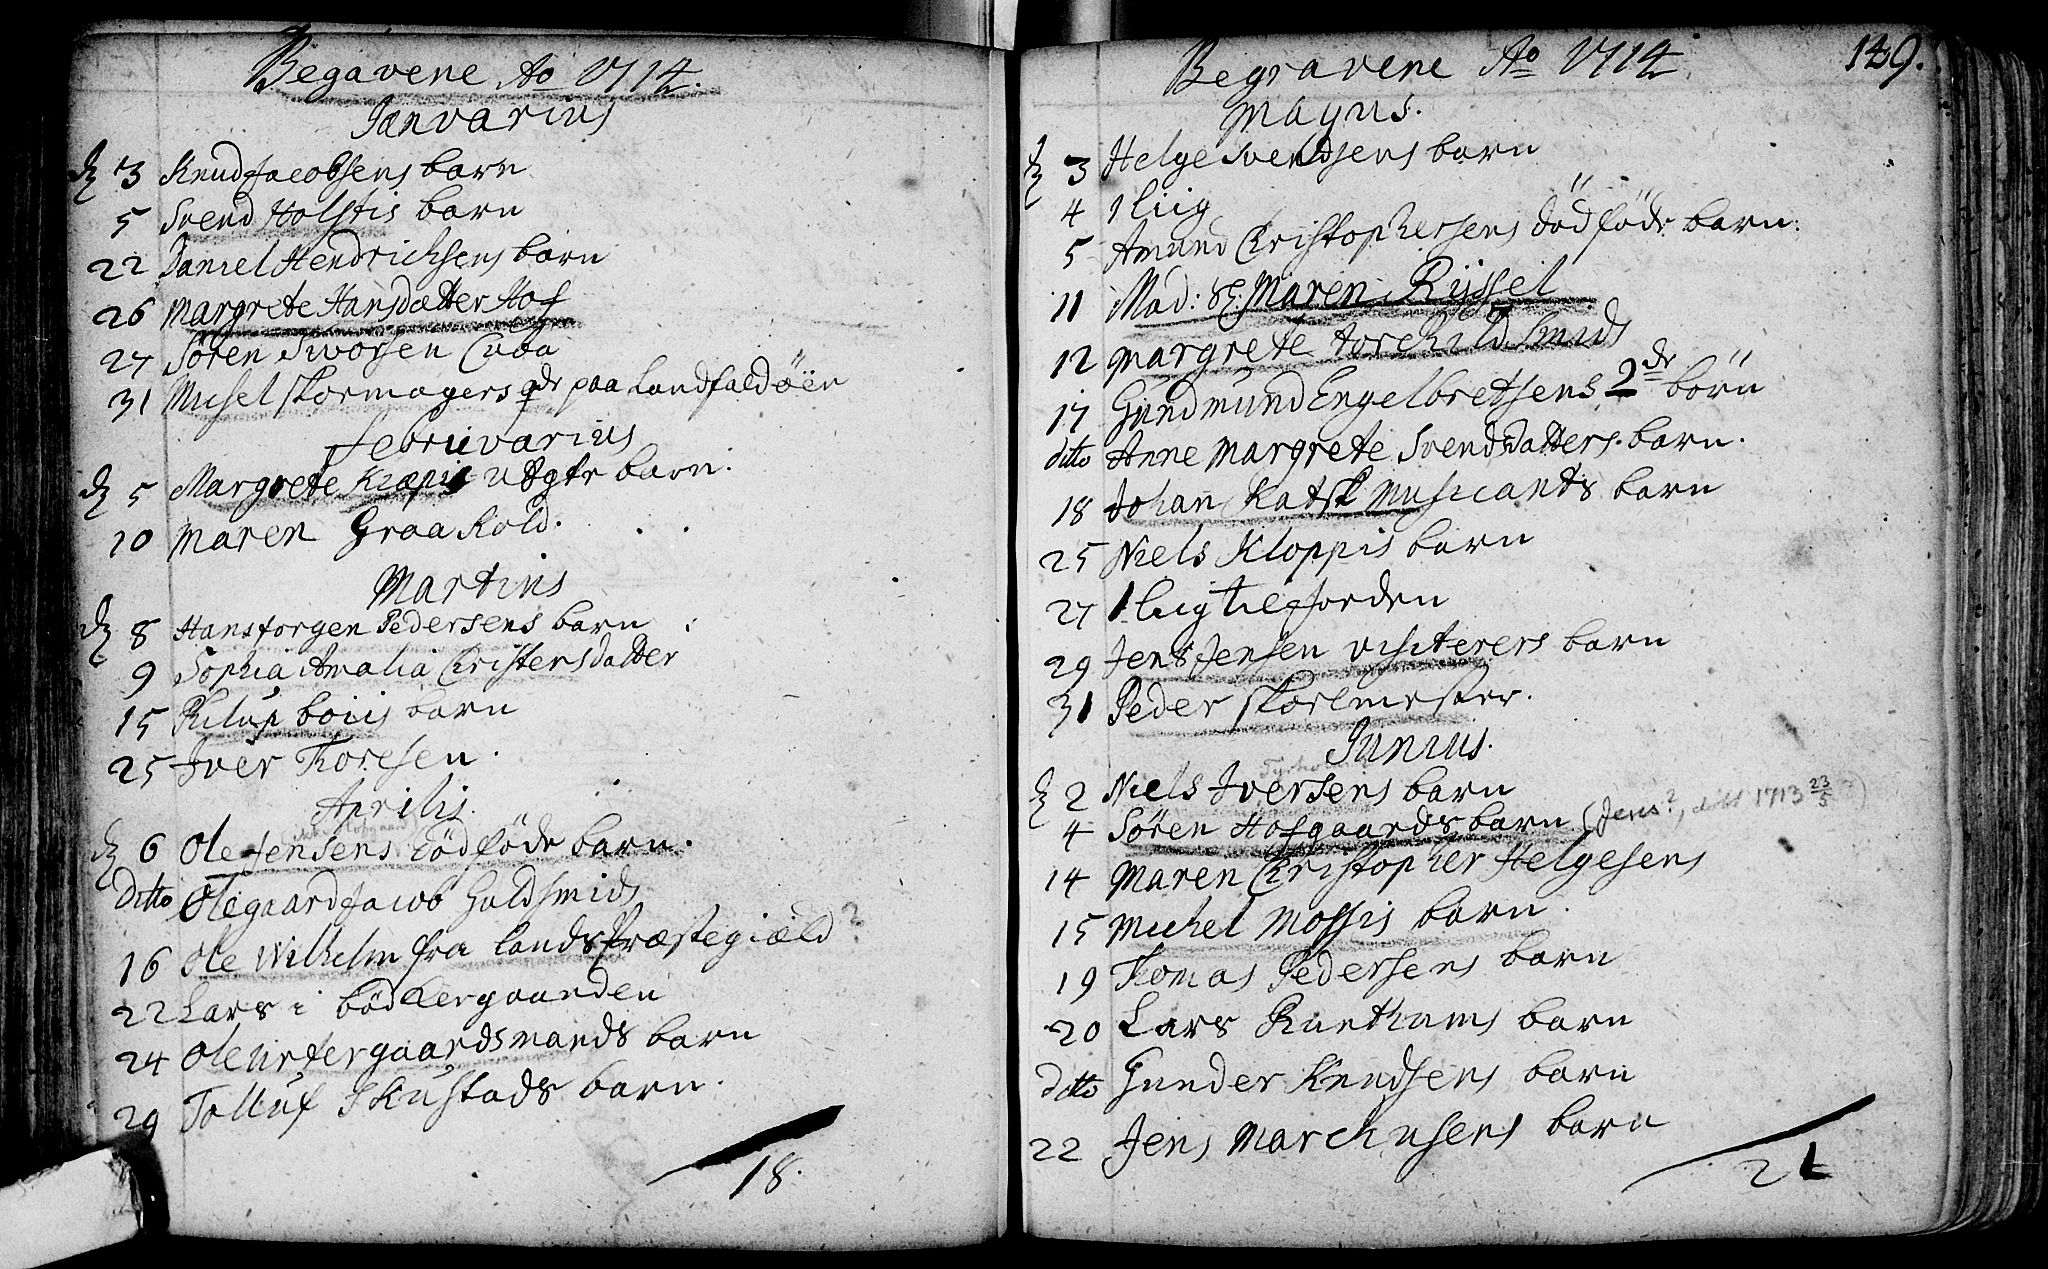 Begavene Ao 1714.
Janvarius
3 Knud Jacobsens barn
5 Svend Holstis barn
22 Daniel Hendrichsens barn
26 Margrete Hansdatter Hof
27 Sören Iworsen Cuba
31 Michel skormagers paa Landfaldöen
Februvarius
5 Margrete Kræpis barn.
10 Maren Graakold.
Martius
8 Hans Jorgen Pedersens barn
9 Sophia Amalia Christensdatter
15 Philup boiis barn
25 Iver Thoresen.
Aprilis
6 Ole Jensens dödföde barn.
Ditto Olegaard Jacob Guldsmids
16 Ole Wilhelm fra Landspræstegiæld ?
22 Lars i bödkergaarden
24 Ole Urtergaardsmands barn
29 Tolluf Skustads barn.
18.
Begravene Ao 1714
149.
Mayus.
3 Helge Svendsens barn
4 1 liig
5 Amund Christophersens dödföde barn.
11 Mad: Sl: Maren Rüssel
12 Margrete Torchild Smids
17 Gundmund Engelbretsens 2de börn
ditto Anne Margrete Svendsdatters barn.
18 Johan Ratsk Musicants barn
25 Niels Kloppis barn
27 1 liig til Jorden
29 Jens Jensen Visiterers barn
31 Peder skorlmester.
Junius.
2 Niels Iversens barn
4 Sören Hofgaards barn (Jens?, 1713 23/5 ?)
14 Maren Christopher Helgesens
15 Michel Mossis barn.
19 Thomas Pedersens barn
20 Lars Runthams barn
ditto Gunder Knudsens barn
22 Jens Marchusens barn
21